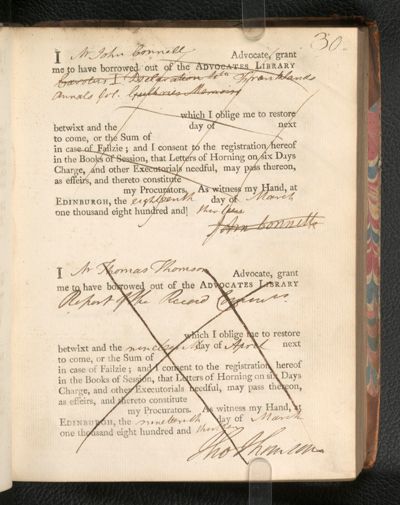 30.
I Mr John Connell Advocate, grant
me to have borrowed out of the ADVOCATES LIBRARY
Declaration
Annals Vol.
which I oblige me to restore
betwixt and the day of next
to come, or the Sum of
in case of Failzie; and I consent to the registration hereof
in the Books of Session, that Letters of Horning on six Days
Charge, and other Executorials needful, may pass thereon,
as effeirs, and thereto constitute
my Procurators. As witness my Hand, at
EDINBURGH, the eighteenth day of March
one thousand eight hundred and
John Connell
I Mr Thomas Thomson Advocate, grant
me to have borrowed out of the ADVOCATES LIBRARY
Report of the Record
which I oblige me to restore
betwixt and the nineteenth day of April next
to come, or the Sum of
in case of Failzie; and I consent to the registration hereof
in the Books of Session, that Letters of Horning on six Days
Charge, and other Executorials needful, may pass thereon,
as effeirs, and thereto constitute
my Procurators. As witness my Hand, at
EDINBURGH, the nineteenth day of March
one thousand eight hundred and
Tho Thomson